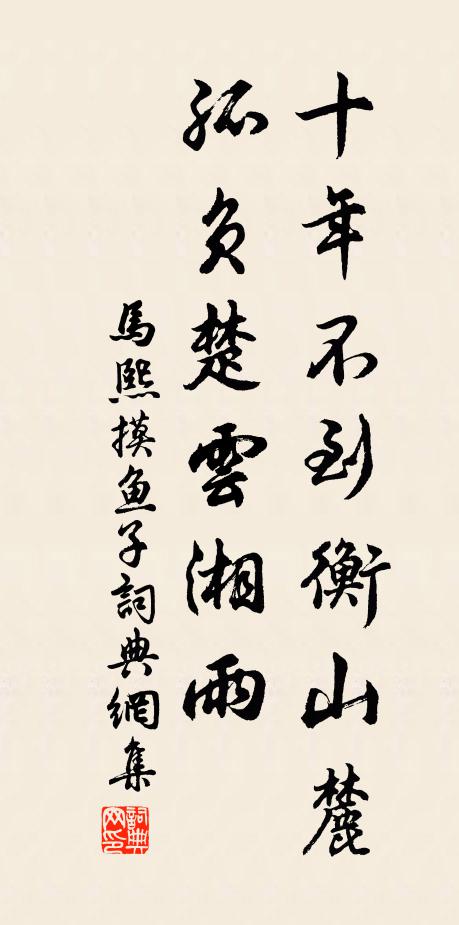 十年不到衡山麓
孤负楚雲湘雨
馬熙摸鱼子詞典網集
詞典网印